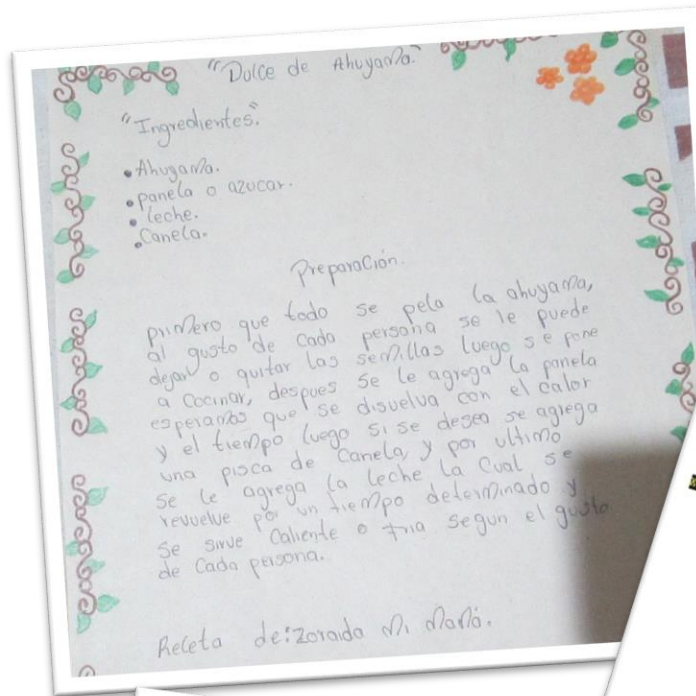 "Dulce de Ahuyama."
"Ingredientes".
• Ahuyama.
• panela o azucar.
• leche.
• Canela.
Preparación.
primero que todo se pela la ahuyama,
al gusto de cada persona se le puede
dejar o quitar las semillas luego se pone
a cocinar, despues se le agrega la panela
esperamos que se disuelva con el calor
y el tiempo luego si se desea se agrega
una pisca de Canela, y por ultimo
se le agrega la leche la Cual se
revuelve por un tiempo determinado y
se sirve Caliente o fria segun el gusto
de Cada persona.
Receta de: Zoraida Mi Mamá.